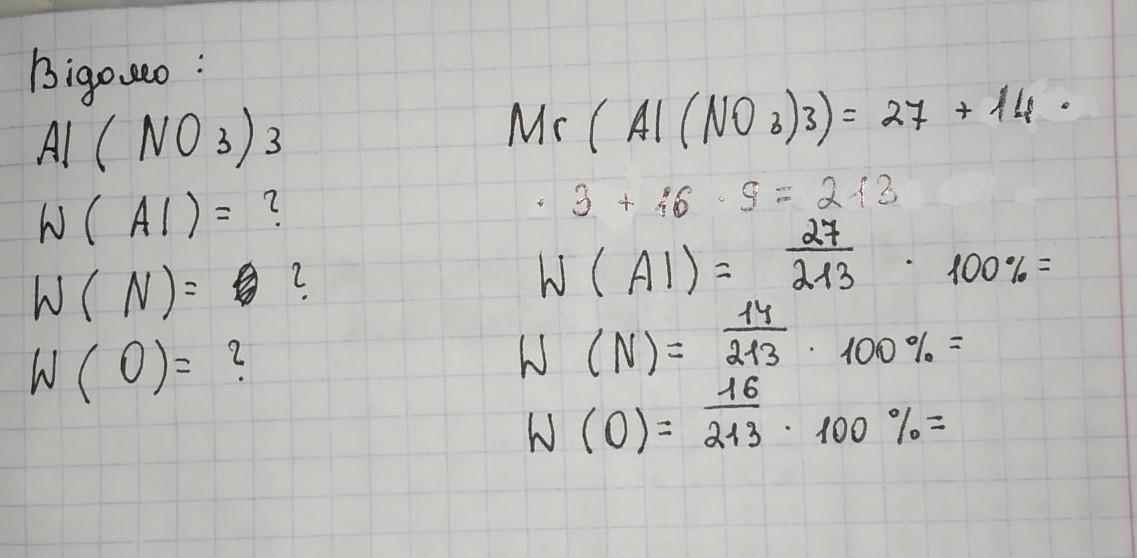 Відомо :
Al ( NO 3 ) 3
W ( Al ) = ?
W ( N ) = ?
W ( O ) = ?
Mr ( Al ( NO 3 ) 3 ) = 27 + 14 ·
· 3 + 16 · 9 = 213
W ( Al ) = 27/213 · 100% =
W ( N ) = 14/213 · 100% =
W ( O ) = 16/213 · 100 % =